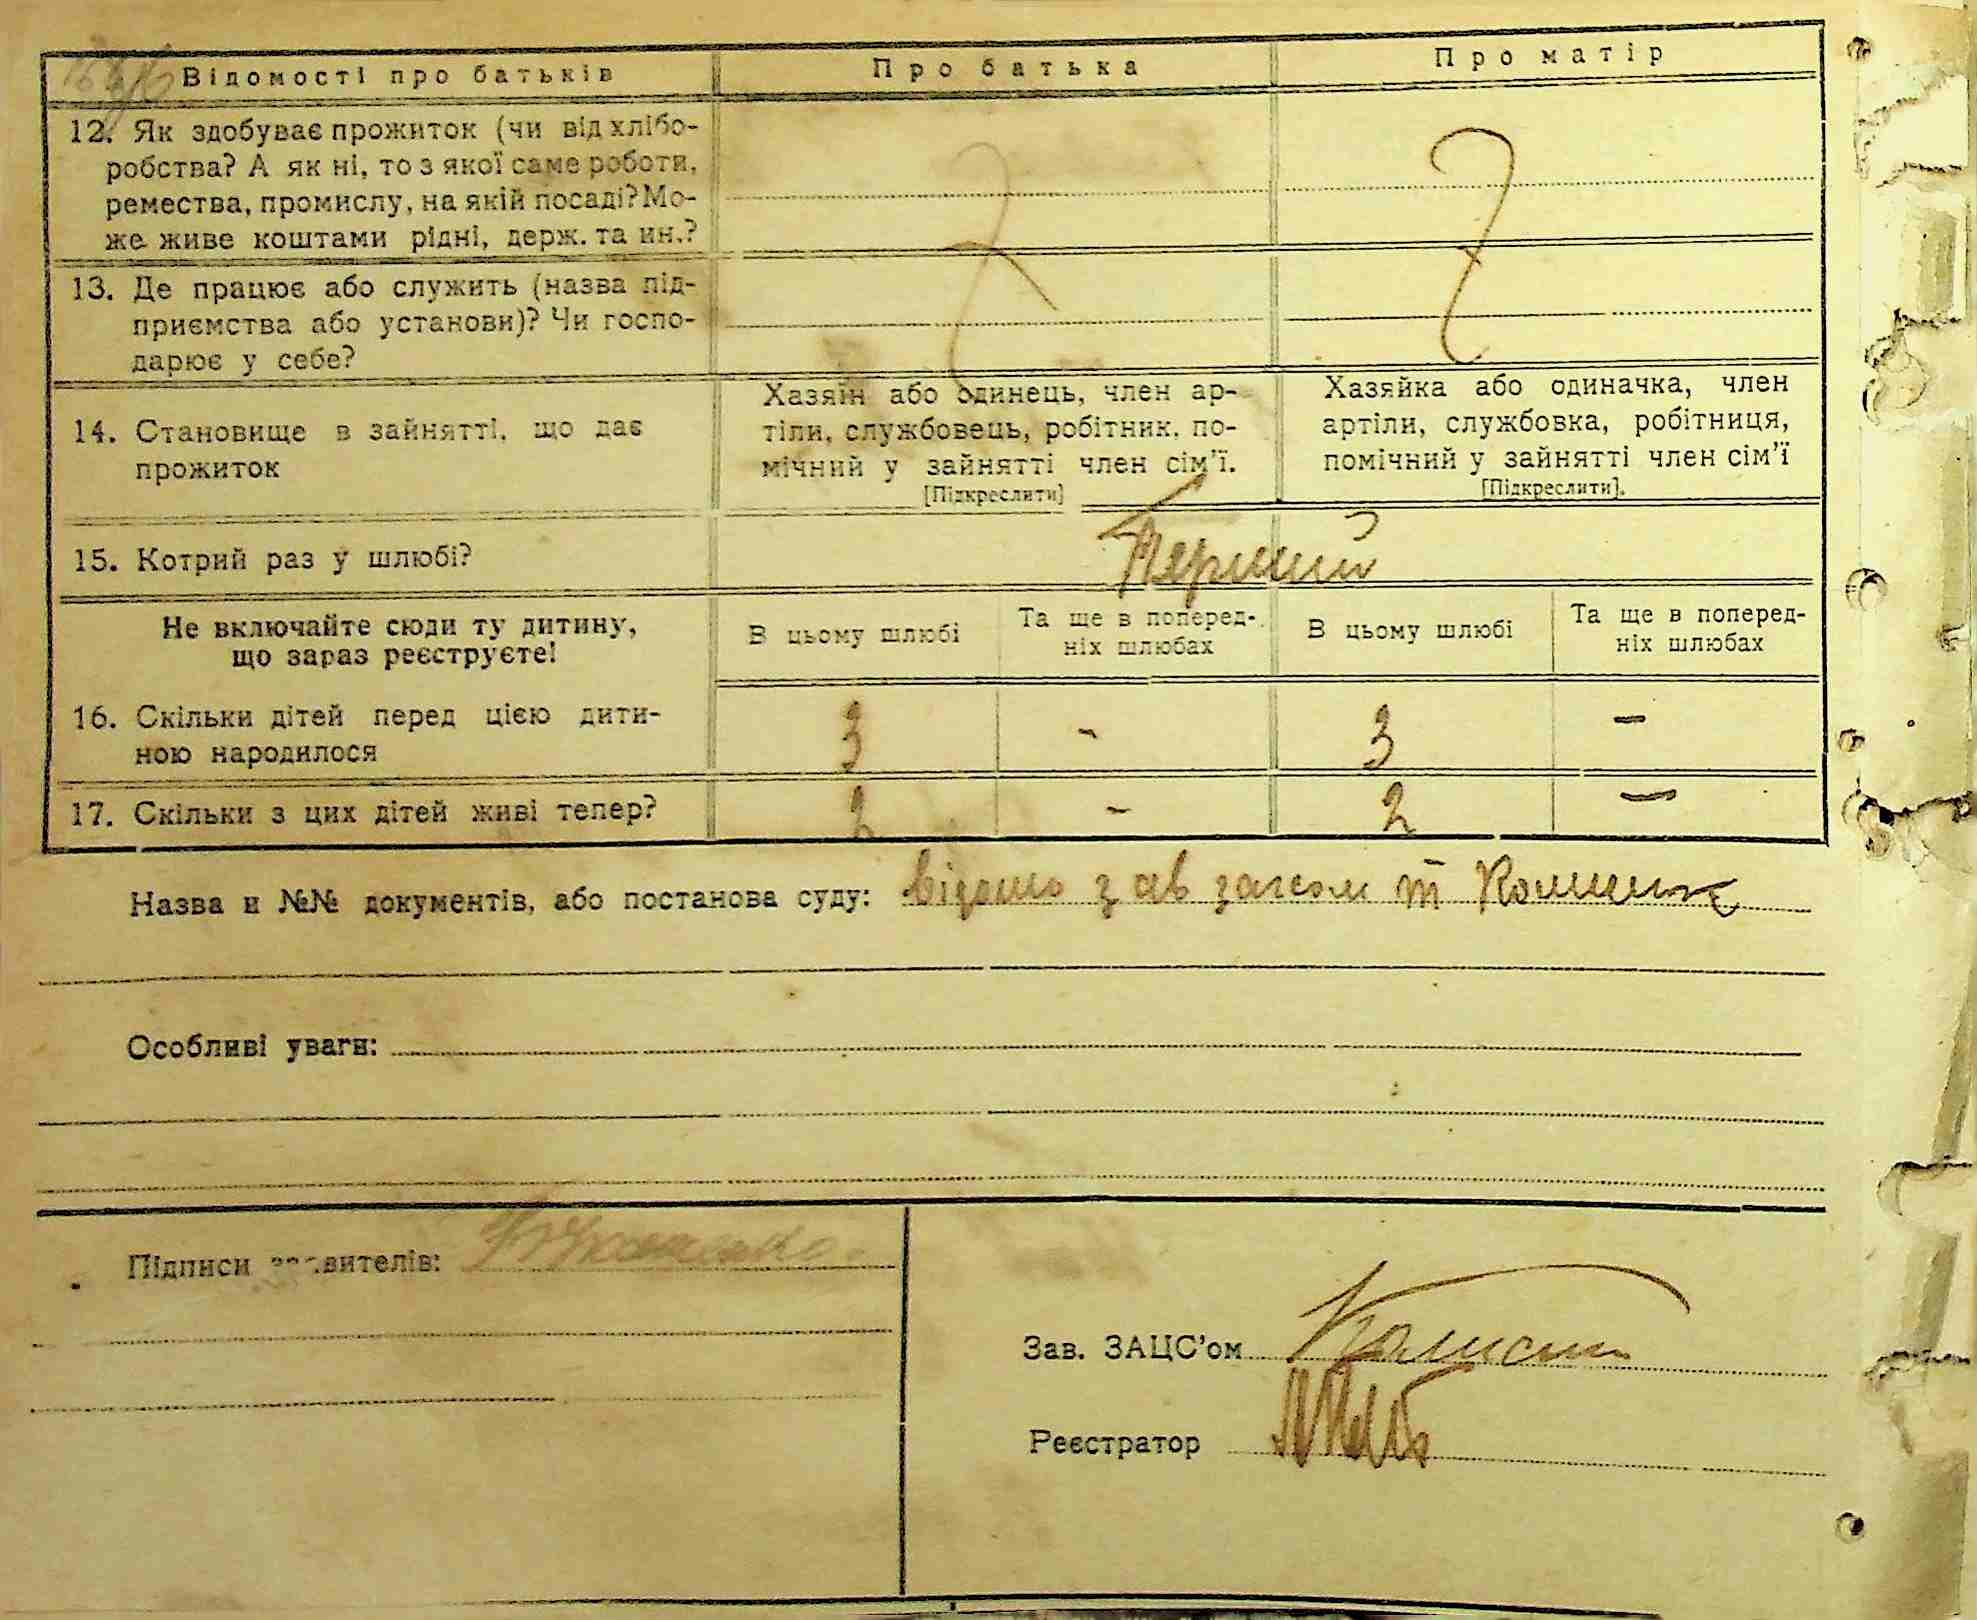 Відомості про батьків
Про батька
Про матір
12. Як здобуває прожиток (чи від хлібо-
робства? А як ні, то з якої саме роботи,
ремества, промислу, на якій посаді? Мо-
же живе коштами рідні, держ. та ин.?
13. Де працює або служить (назва під-
приємства або установи)? Чи госпо-
дарює у себе?
14. Становище в зайнятті, що дає
прожиток
Хазяїн або одинець, член ар-
тіли, службовець, робітник, по-
мічний у зайнятті член сім'ї.
[Підкреслити]
Хазяйка або одиначка, член
артіли, службовка, робітниця,
помічний у зайнятті член сім'ї
[Підкреслити].
15. Котрий раз у шлюбі?
Перший
Не включайте сюди ту дитину,
що зараз реєструєте!
В цьому шлюбі
Та ще в поперед-
ніх шлюбах
В цьому шлюбі
Та ще в поперед-
ніх шлюбах
16. Скільки дітей перед цією дити-
ною народилося
3 - 3 -
17. Скільки з цих дітей живі тепер?
2 - 2 -
Назва и №№ документів, або постанова суду: відомо з ав загсом т
Особливі уваги:
Підписи заявителів:
Зав. ЗАЦС'ом
Реєстратор